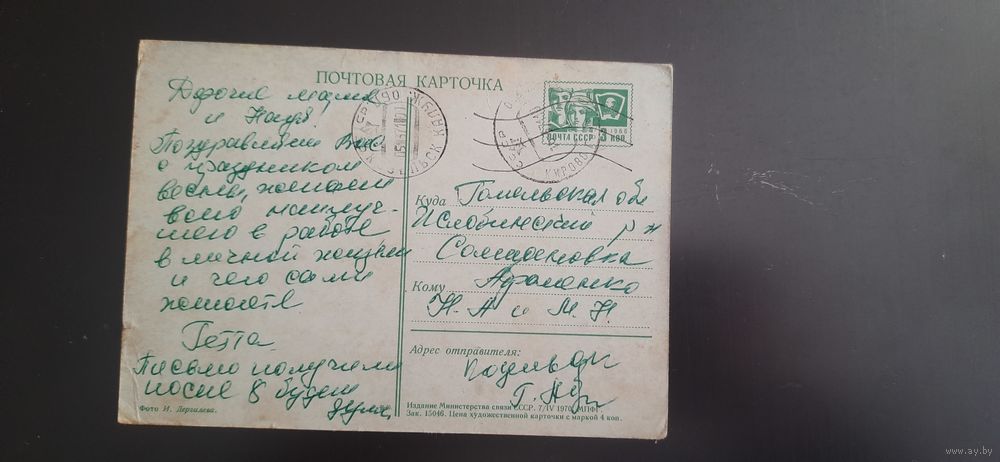 ПОЧТОВАЯ КАРТОЧКА
Дорогие мама
и Надя!
Поздравляем Вас
с праздником
весны, желаем
всего наилуч-
шего в работе
в личной жизни
и чего сами
желаете
Гетта.
Письмо получили
после 8 будем
Фото И. Дергилева.
ПОЧТА СССР 1966 3 КОП
КИРОВО
Куда Гомельская обл
Жлобинский р-н
Кому
Н. А и М. Н.
Адрес отправителя:
Издание Министерства связи СССР. 7/IV 1970. МПФГ.
Зак. 15046. Цена художественной карточки с маркой 4 коп.
www.ay.by